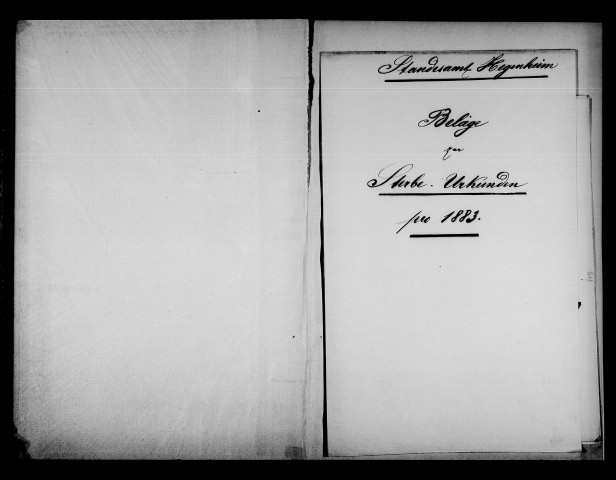 Standesamt Hegenheim
Beläge
zur
Sterbe-Urkunden
pro 1883.